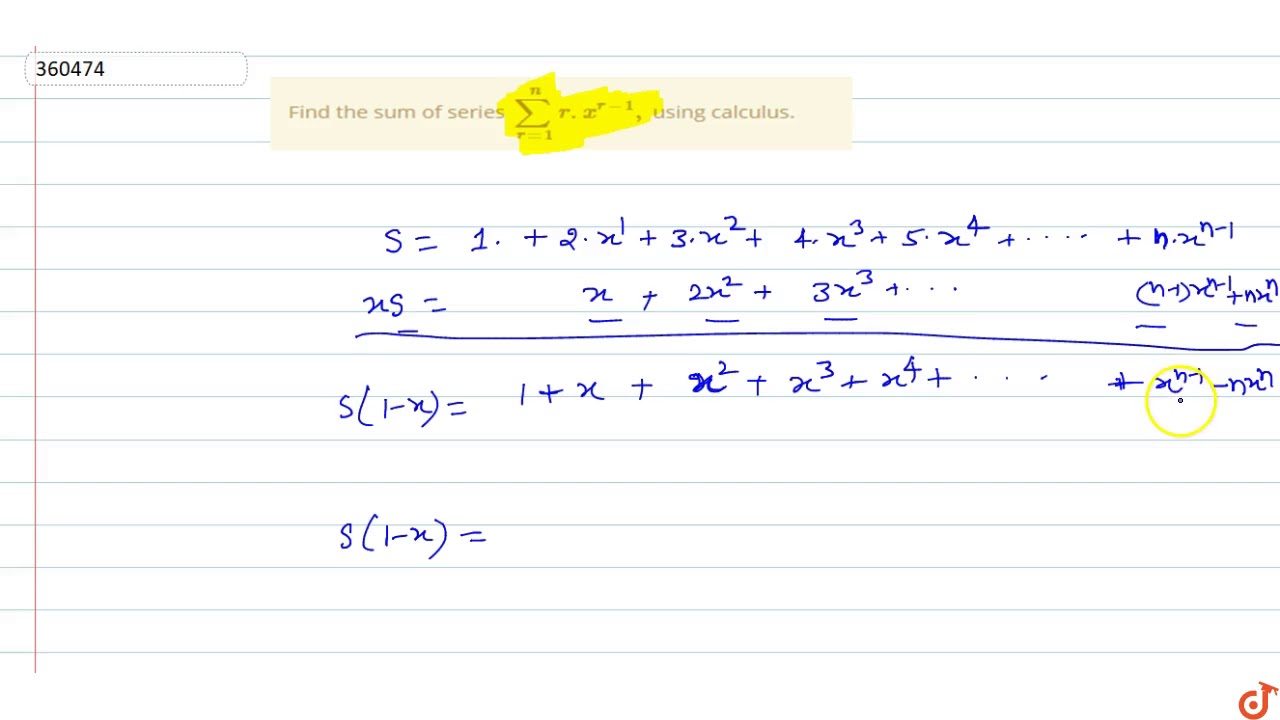 360474
Find the sum of series \sum_{r=1}^{n} r. x^{r-1}, using calculus.
S = 1. + 2·x^1 + 3·x^2 + 4·x^3 + 5·x^4 + ···· + n·x^{n-1}
xS = x + 2x^2 + 3x^3 + ··· (n-1)x^{n-1} + nx^n
S(1-x) = 1 + x + x^2 + x^3 + x^4 + ··· + x^{n-1} - nx^n
S(1-x) =